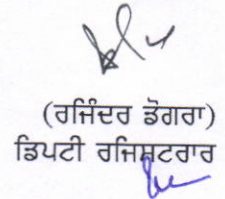 (ਰਜਿੰਦਰ ਡੋਗਰਾ)
ਡਿਪਟੀ ਰਜਿਸ਼ਟਰਾਰ